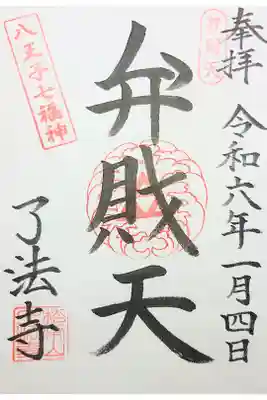 奉拝
令和六年一月四日
弁財天
八王子七福神
了法寺